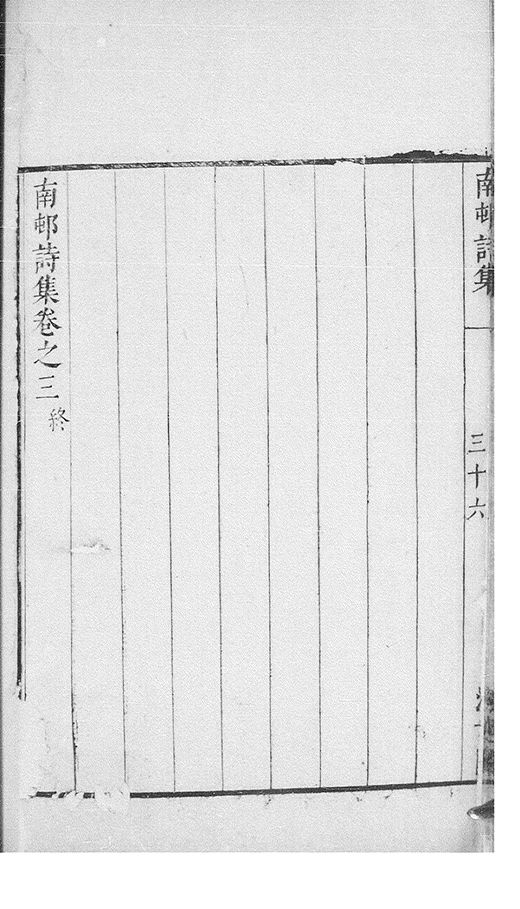 南邨詩集
三十六
南邨詩集卷之三終